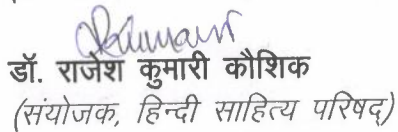 डॉ. राजेश कुमारी कौशिक
(संयोजक, हिन्दी साहित्य परिषद)